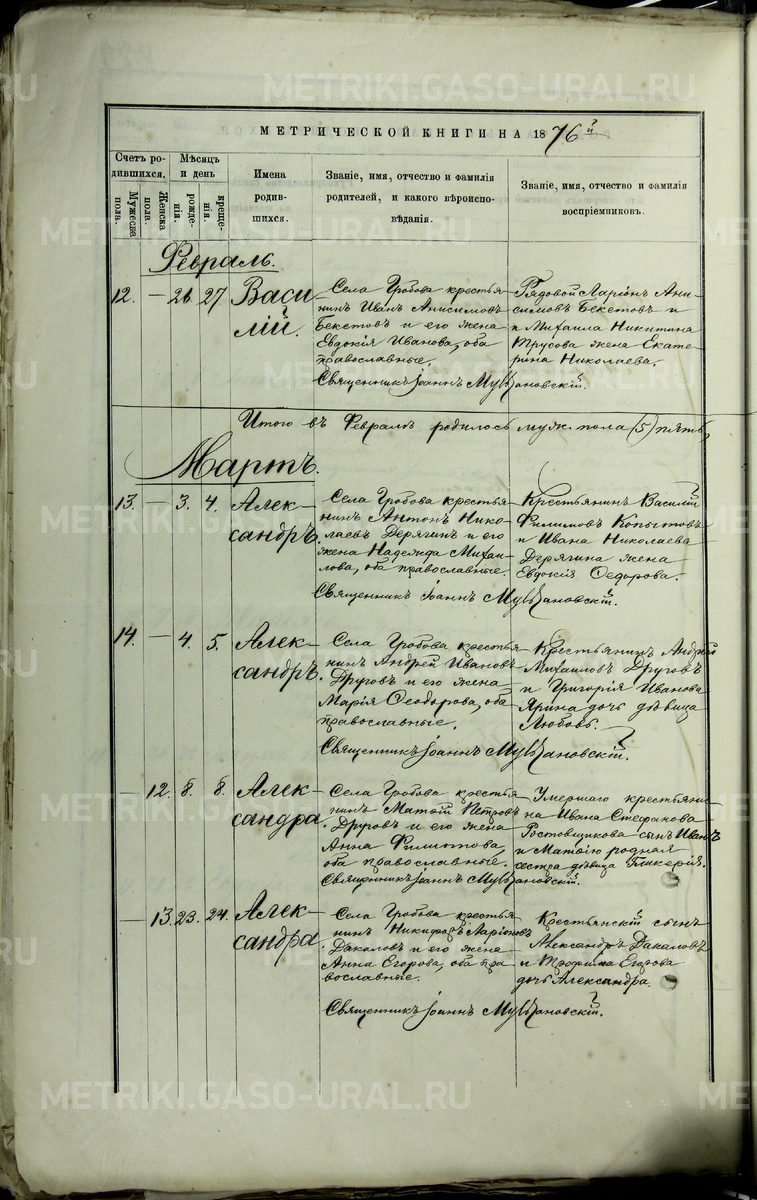 METRIKI.GASO-URAL.RU
МЕТРИЧЕСКОЙ КНИГИ НА 1876й
Счетъ родившихся.
Мужеска пола.
Женска пола.
Мѣсяцъ и день
рожденія.
крещенія.
Имена родившихся.
Званіе, имя, отчество и фамилія родителей, и какого вѣроисповѣданія.
Званіе, имя, отчество и фамилія воспріемниковъ.
Февраль.
12. — 26 27 Василій.
Села Гробова крестья-
нинъ Иванъ Анисимовъ
Бекетовъ и его жена
Евдокія Иванова, оба
православные.
Рядовой Ларіонъ Ани-
симовъ Бекетовъ и
и Михаила Никитина
Трусова жена Екате-
рина Николаева.
Священникъ Іоаннъ
Итого въ Февралѣ родилось муж. пола (5) пять
Мартъ.
13. — 3. 4. Александръ.
Села Гробова крестья-
нинъ Антонъ Нико-
лаевъ Дерягинъ и его
жена Надежда Михаи-
лова, оба православные.
Крестьянинъ Василій
Филимовъ Копытовъ
и Ивана Николаева
Дерягина жена
Евдокія Ѳедорова.
Священникъ Іоаннъ
14. — 4. 5. Александръ.
Села Гробова крестья-
нинъ Андрей Ивановъ
Друговъ и его жена
Марія Ѳеодорова, оба
православные.
Крестьянинъ Андрей
Михаиловъ Друговъ
и Григорія Иванова
Ярина дочь дѣвица
Любовь.
Священникъ Іоаннъ
— 12. 8. 8. Александра.
Села Гробова крестья-
нинъ Матѳій Петровъ
Друговъ и его жена
Анна Филиппова,
оба православные.
Умершаго крестьяни-
на Ивана Стефанова
Ростовщикова сынъ Иванъ
и Матѳію родная
сестра дѣвица Гликерія.
Священникъ Іоаннъ
— 13. 23. 24. Александра.
Села Гробова крестья-
нинъ Никифоръ Ларіоновъ
Дакаловъ и его жена
Анна Егорова, оба пра-
вославные.
Крестьянскій сынъ
Александръ Дакаловъ
и Трофима Егорова
дочь Александра.
Священникъ Іоаннъ
METRIKI.GASO-URAL.RU